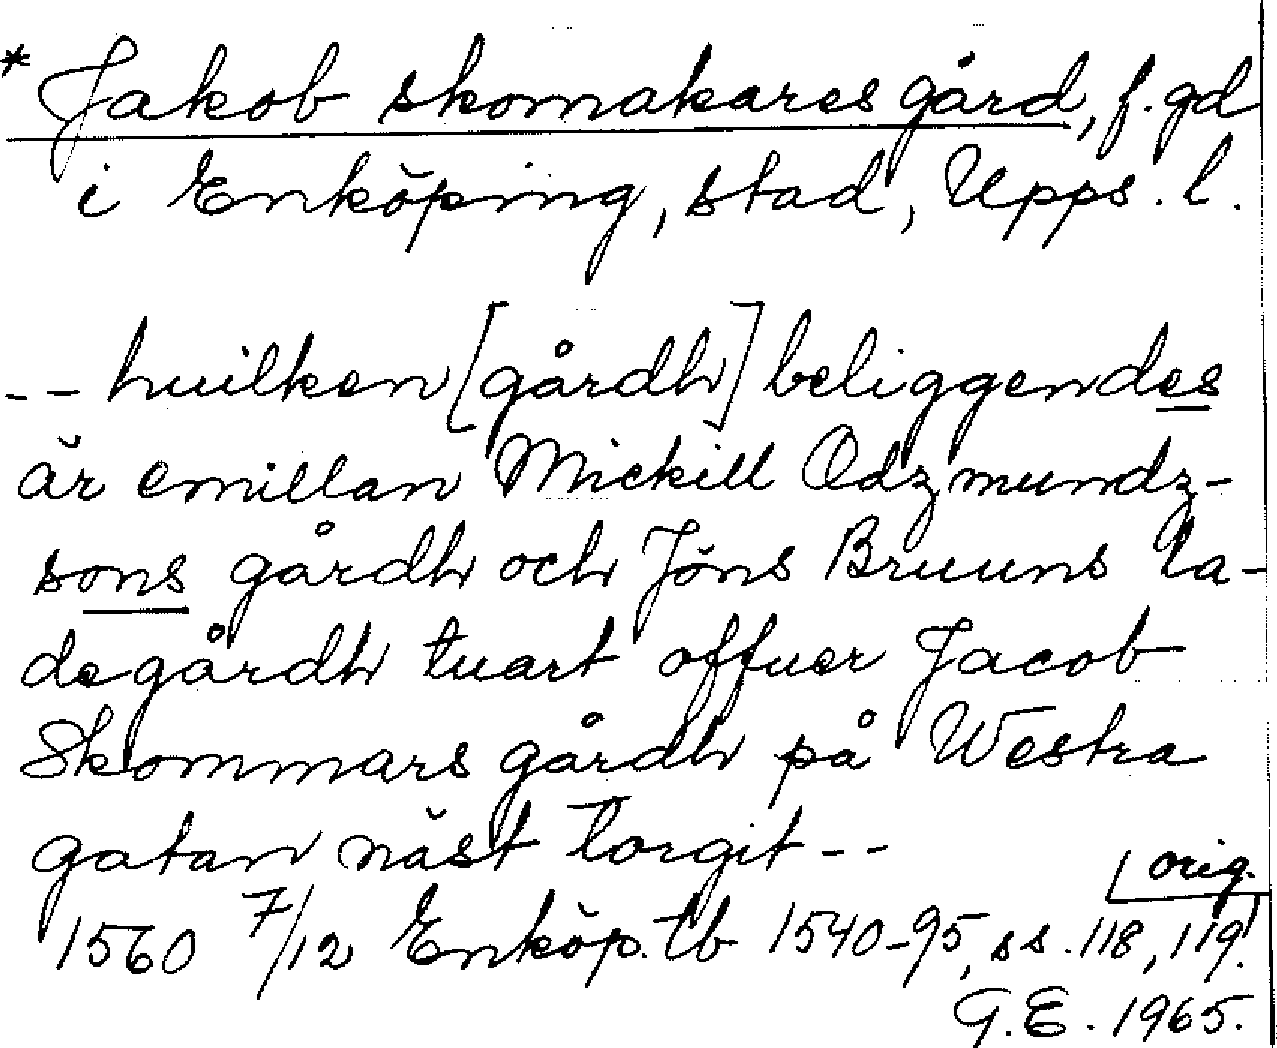 * Jakob skomakares gård, f. gd
i Enköping, stad, Upps. l.
-- huilken [gårdh] beliggendes
är emillan Mickill Odzmundz-
sons gårdh och Jöns Bruuns la-
degårdh tuart offuer Jacob
Skommars gårdh på Westra
gatan näst Torgit --
orig.
1560 7/12 Enköp. tb 1540-95, ss. 118, 119.
G.E. 1965.